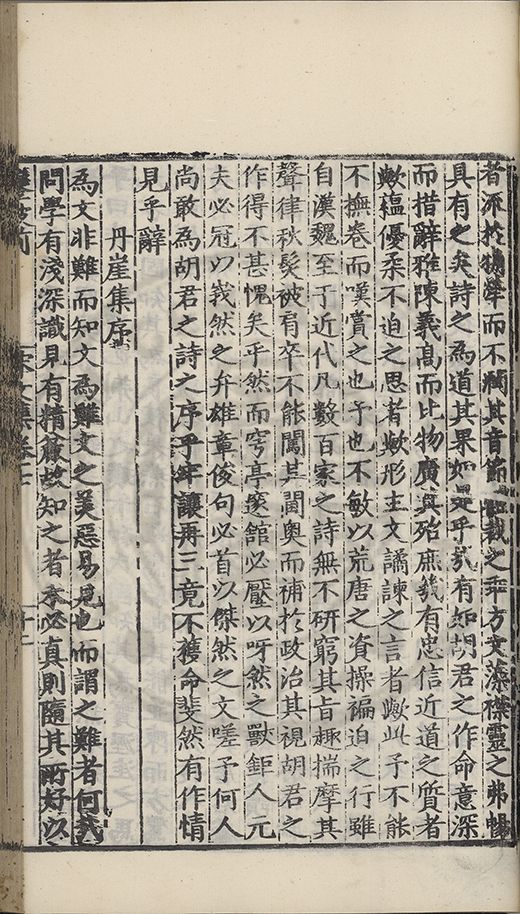 者流於
而不
其音節
裁之乖方文藻襟靈之弗暢
具有之矣詩之為道其果如是乎哉有如胡君之作命意深
而措辭雅陳義高而比物廣其殆庶幾有忠信近道之質者
歟蘊優柔不迫之思者歟形主文譎諫之言者歟此予不能
不撫卷而嘆賞之也予也不敏以荒唐之資操褊迫之行雖
自漢魏至于近代凡數百家之詩無不研窮其旨趣揣摩其
聲律秋髮被肩卒不能闖其閫奧而補於政治其視胡君之
作得不甚愧矣乎然而穹亭邃館必壓以呀然之獸鉅人元
夫必冠以峩然之弁雄章俊句必首以傑然之文嗟予何人
尚敢為胡君之詩之序乎牢讓再三竟不獲命斐然有作情
見乎辭
丹崖集序
為文非難而知文為難文之美惡易見也而謂之難者何哉
問學有淺深識見有精麤故知之者未必真則隨其所好以
宋文集卷十二
十二